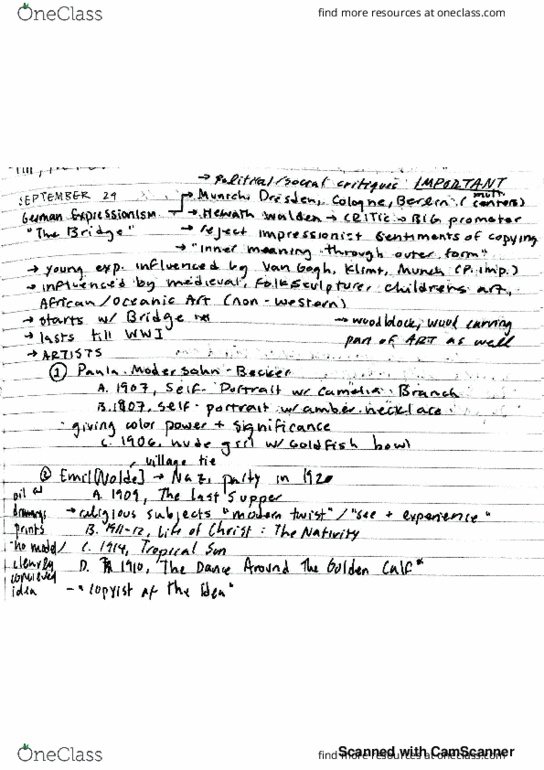 OneClass
find more resources at oneclass.com
→ Political/social critique IMPORTANT
SEPTEMBER 29
→ Munich, Dresden, Cologne, Berlin (multi centers)
German Expressionism
→ Herwath Walden → CRITIC → BIG promoter
"The Bridge"
→ reject impressionist sentiments of copying
→ "inner meaning through outer form"
→ young exp. influenced by Van Gogh, Klimt, Munch (P. imp.)
→ influenced by medieval, folk sculpture, childrens art,
African/Oceanic Art (non-western)
→ starts w/ Bridge
→ woodblock, wood carving
→ lasts till WWI
part of ART as well
→ ARTISTS
① Paula Modersohn-Becker
A. 1907, Self-Portrait w/ Camelia Branch
B. 1907, self-portrait w/ amber necklace
giving color power + significance
C. 1906, nude girl w/ Goldfish bowl
village tie
② Emil [Nolde] → Nazi party in 1920
oil
A. 1909, The Last Supper
drawings
→ religious subjects "modern twist" / "see + experience"
prints
B. 1911-12, Life of Christ: The Nativity
"no model/
C. 1914, Tropical Sun
clearly
D. 1910, The Dance Around The Golden Calf*
conceived
idea
→ "copyist of the idea"
Scanned with CamScanner
OneClass
find more resources at oneclass.com